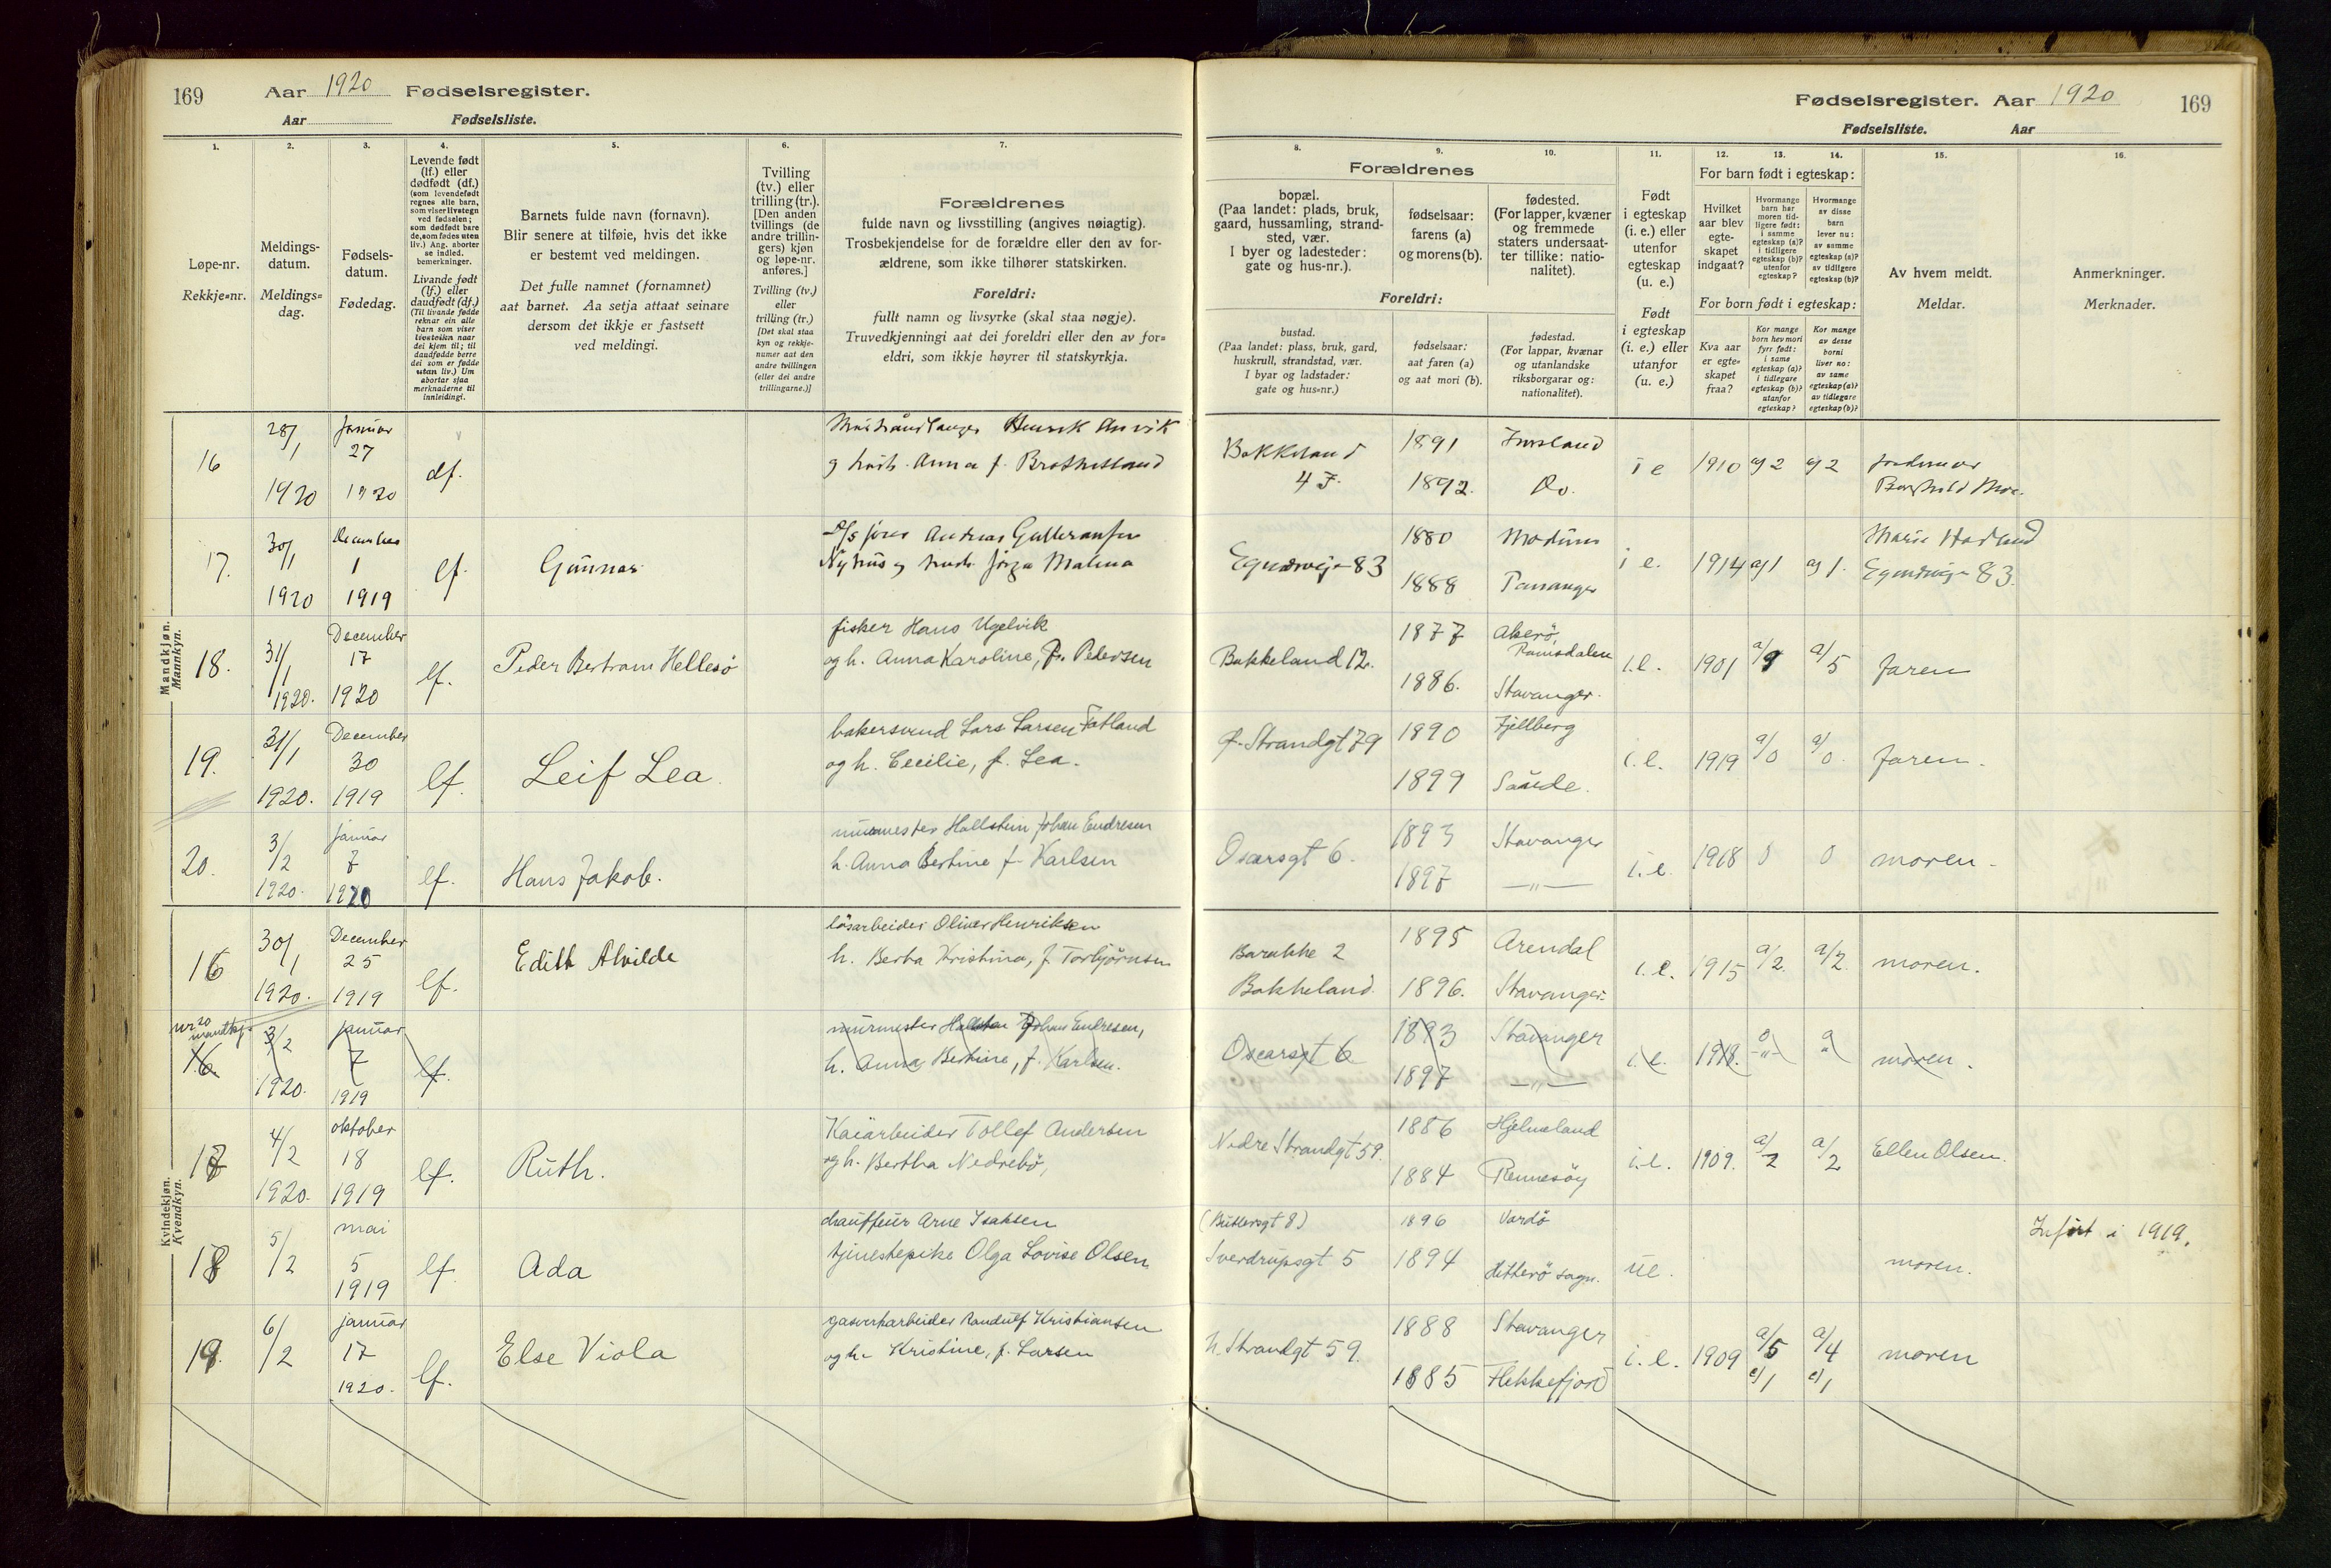 169 Aar 1920 Fødselsregister.
Aar Fødselsliste.
1. 2. 3. 4. 5. 6. 7.
Løpe-nr.
Rekkje=nr.
Meldings-
datum.
Meldings=
dag.
Fødsels-
datum.
Fødedag.
Levende født
(lf.) eller
dødfødt (df.)
(som levendefødt
regnes alle barn,
som viser livstegn
ved fødselen;
som dødfødt bare
de, som fødes uten
liv.) Ang. aborter
se indled.
bemerkninger.
Livande født
(lf.) eller
daudfødt (df.)
(Til livande fødde
reknar ein alle
barn som viser
livsteikn naar
dei kjem til; til
daudfødde berre
dei som er fødde
utan liv.) Um
abortar sjaa
merknaderne til
innleidingi.
Barnets fulde navn (fornavn).
Blir senere at tilføie, hvis det ikke
er bestemt ved meldingen.
Det fulle namnet (fornamnet)
aat barnet. Aa setja attaat seinare
dersom det ikkje er fastsett
ved meldingi.
Tvilling
(tv.) eller
trilling (tr.).
[Den anden
tvillings (de
andre trillin-
gers) kjøn
og løpe-nr.
anføres.]
Tvilling (tv.)
eller
trilling (tr.)
[Det skal staa
kyn og rekkje-
numer aat den
andre tvillingen
(eller dei andre
trillingarne.)]
Forældrenes
fulde navn og livsstilling (angives nøiagtig).
Trosbekjendelse for de forældre eller den av for-
ældrene, som ikke tilhører statskirken.
Foreldri:
fullt namn og livsyrke (skal staa nøgje).
Truvedkjenningi aat dei foreldri eller den av for=
eldri, som ikkje høyrer til statskyrkja.
Mandkjøn.
Mannkyn.
16 28/1 1920 Januar 27 1920 df.
Henrik Anvik
Anna f.
17. 30/1 1920 December 1 1919 lf. Gunnar
Andreas
Malena
18. 31/1 1920. December 17 1920 lf. Peder Bertram Hellesö
fisker Hans Ugelvik
og h. Anna Karoline, f. Pedersen
19. 31/1 1920. December 30 1919 lf. Leif Lea
bakersvend Lars Larsen Tatland
og h. Cecilie, f. Lea.
20. 3/2 1920. januar 7 1920 lf. Hans Jakob.
murmester Hallstein Johan Endresen
h. Anna Bertine f. Karlsen
Kvindekjøn.
Kvendkyn.
16 30/1 1920. December 25 1919 lf. Edith Alvilde
løsarbeider Oliver Henriksen
h. Berta Kristina, f. Torbjörnsen
nr 20
mandkj.
16. 3/2 1920. januar 7 1919 lf.
murmester Hallstein Johan Endresen,
h. Anna Bertine, f. Karlsen.
17 4/2 1920. oktober 18 1919 lf. Ruth.
Kaiarbeider Tollef Andersen
og h. Bertha Nedrebö,
18 5/2 mai 5 1919 lf Ada
chauffeur Arne Isaksen
tjenestepike Olga Lovise Olsen
19. 6/2 januar 17 1920. lf. Else Viola
gasverkarbeider Randulf Kristiansen
og h. Kristine, f. Larsen
Fødselsregister. Aar 1920 169
Fødselsliste. Aar
8. 9. 10. 11. 12. 13. 14. 15. 16.
Forældrenes
bopæl.
(Paa landet: plads, bruk,
gaard, hussamling, strand-
sted, vær.
I byer og ladesteder:
gate og hus-nr.).
fødselsaar:
farens (a)
og morens (b).
fødested.
(For lapper, kvæner
og fremmede
staters undersaat-
ter tillike: natio-
nalitet).
Foreldri:
bustad.
(Paa landet: plass, bruk, gard,
huskrull, strandstad, vær.
I byar og ladstader:
gate og hus=nr.)
fødselsaar:
aat faren (a)
og aat mori (b).
fødestad.
(For lappar, kvænar
og utanlandske
riksborgarar og:
nationalitet).
Født
i egteskap
(i. e.) eller
utenfor
egteskap
(u. e.)
Født
i egteskap
(i. e.) eller
utanfor
(u. e.)
For barn født i egteskap:
Hvilket
aar blev
egte-
skapet
indgaat?
Hvormange
barn har
moren tid-
ligere født:
i samme
egteskap (a)?
i tidligere
egteskap (b)?
utenfor
egteskap?
Hvormange
av disse
barn
lever nu:
av samme
egteskap (a)?
av tidligere
egteskap (b)?
For born født i egteskap:
Kva aar
er egte=
skapet
fraa?
Kor mange
born hev mori
fyrr født:
i same
egteskap (a)?
i tidlegare
egteskap (b)?
utanfor
egteskap?
Kor mange
av desse
borni
liver no:
av same
egteskap (a)?
av tidlegare
egteskap (b)?
Av hvem meldt.
Meldar.
Anmerkninger.
Merknader.
Bakkeland 1891 i e 1910 a) 2 a) 2 jordmor
1892. Do. Borghild Moe.
Egenesvej 83 1880 Modum i e. 1914 a) 1 a) 1. Marie
1888 83.
Bakkeland 12. 1877 Akerö, Romsdalen i.e. 1901 a/9 a/5 faren
1886. Stavanger.
Strandgt 79 1890 Fjellberg i.e. 1919 a/0 a/0. faren.
1899 Saude.
Oscarsgt 6. 1893 Stavanger i.e. 1918 0 0 moren.
1897 —"—
Barakke 2 1895 Arendal i.e. 1915 a/2. a/2. moren.
Bakkeland. 1896. Stavanger.
Oscarsgt 6 1893 Stavanger i.e. 1918. moren.
1897 —"—
Nedre Strandgt 59. 1886 Hjelmeland i.e. 1909. a/2 a/2 Ellen Olsen.
1884 Rennesöy
(Butlersgt 8) 1896 Vardö Infört i 1919.
Sverdrupsgt 5 1894 Hitterö sogn. ue. moren.
n. Strandgt 59. 1888 Stavanger i.e. 1909 a/5 a/4 moren
1885 Flekkefjord c)1 c)1